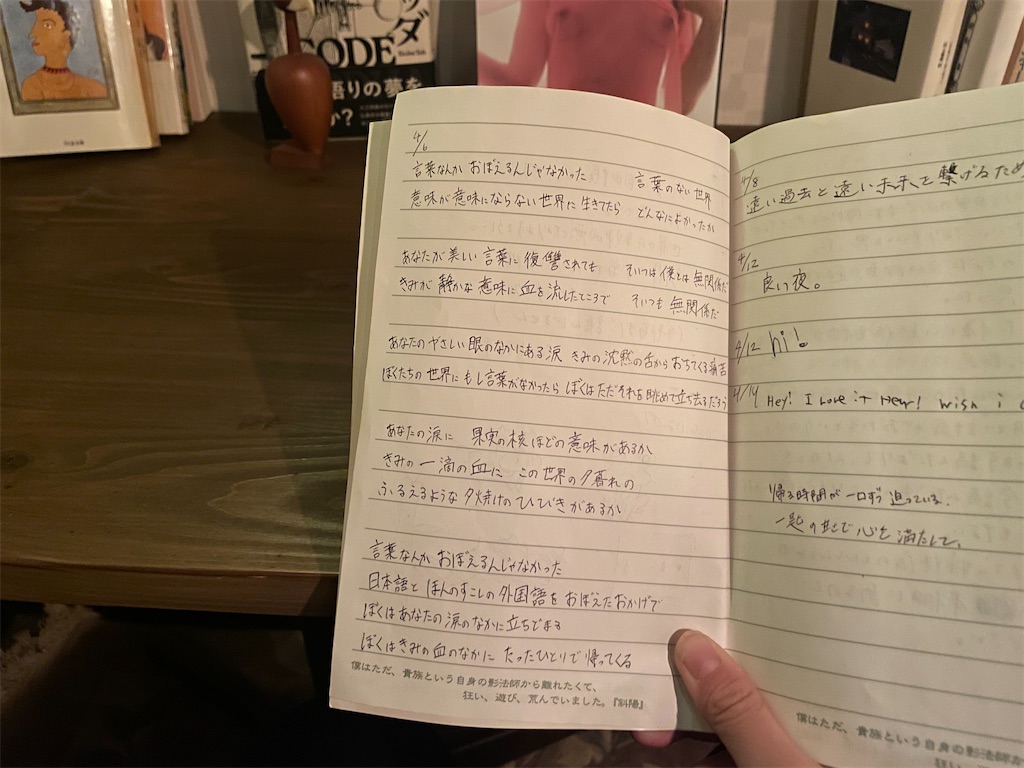 ッダ
CODE
語りの夢を
か?
4/6
言葉なんか おぼえるんじゃなかった 言葉のない世界
意味が意味にならない世界に生きてたら どんなによかったか
あなたが美しい言葉に復讐されても そいつは僕とは無関係だ
きみが静かな意味に血を流したところで そいつも無関係だ
あなたのやさしい眼のなかにある涙 きみの沈黙の舌からおちてくる痛苦
ぼくたちの世界にもし言葉がなかったら ぼくはただそれを眺めて立ち去るだろう
あなたの涙に 果実の核ほどの意味があるか
きみの一滴の血に この世界の夕暮れの
ふるえるような夕焼けのひびきがあるか
言葉なんか おぼえるんじゃなかった
日本語と ほんのすこしの外国語を おぼえたおかげで
ぼくはあなたの涙のなかに立ちどまる
ぼくはきみの血のなかに たったひとりで帰ってくる
僕はただ、貴族という自身の影法師から離れたくて、
狂い、遊び、荒んでいました。『斜陽』
4/8
遠い過去と遠い未来を繋げるため
4/12
良い夜。
4/12 hi!
4/14 Hey! I love it here! wish i
帰る時間が一口ずつ迫っている.
一匙の で心を満たして、
僕はただ、貴族という自身の影法師か
狂い、